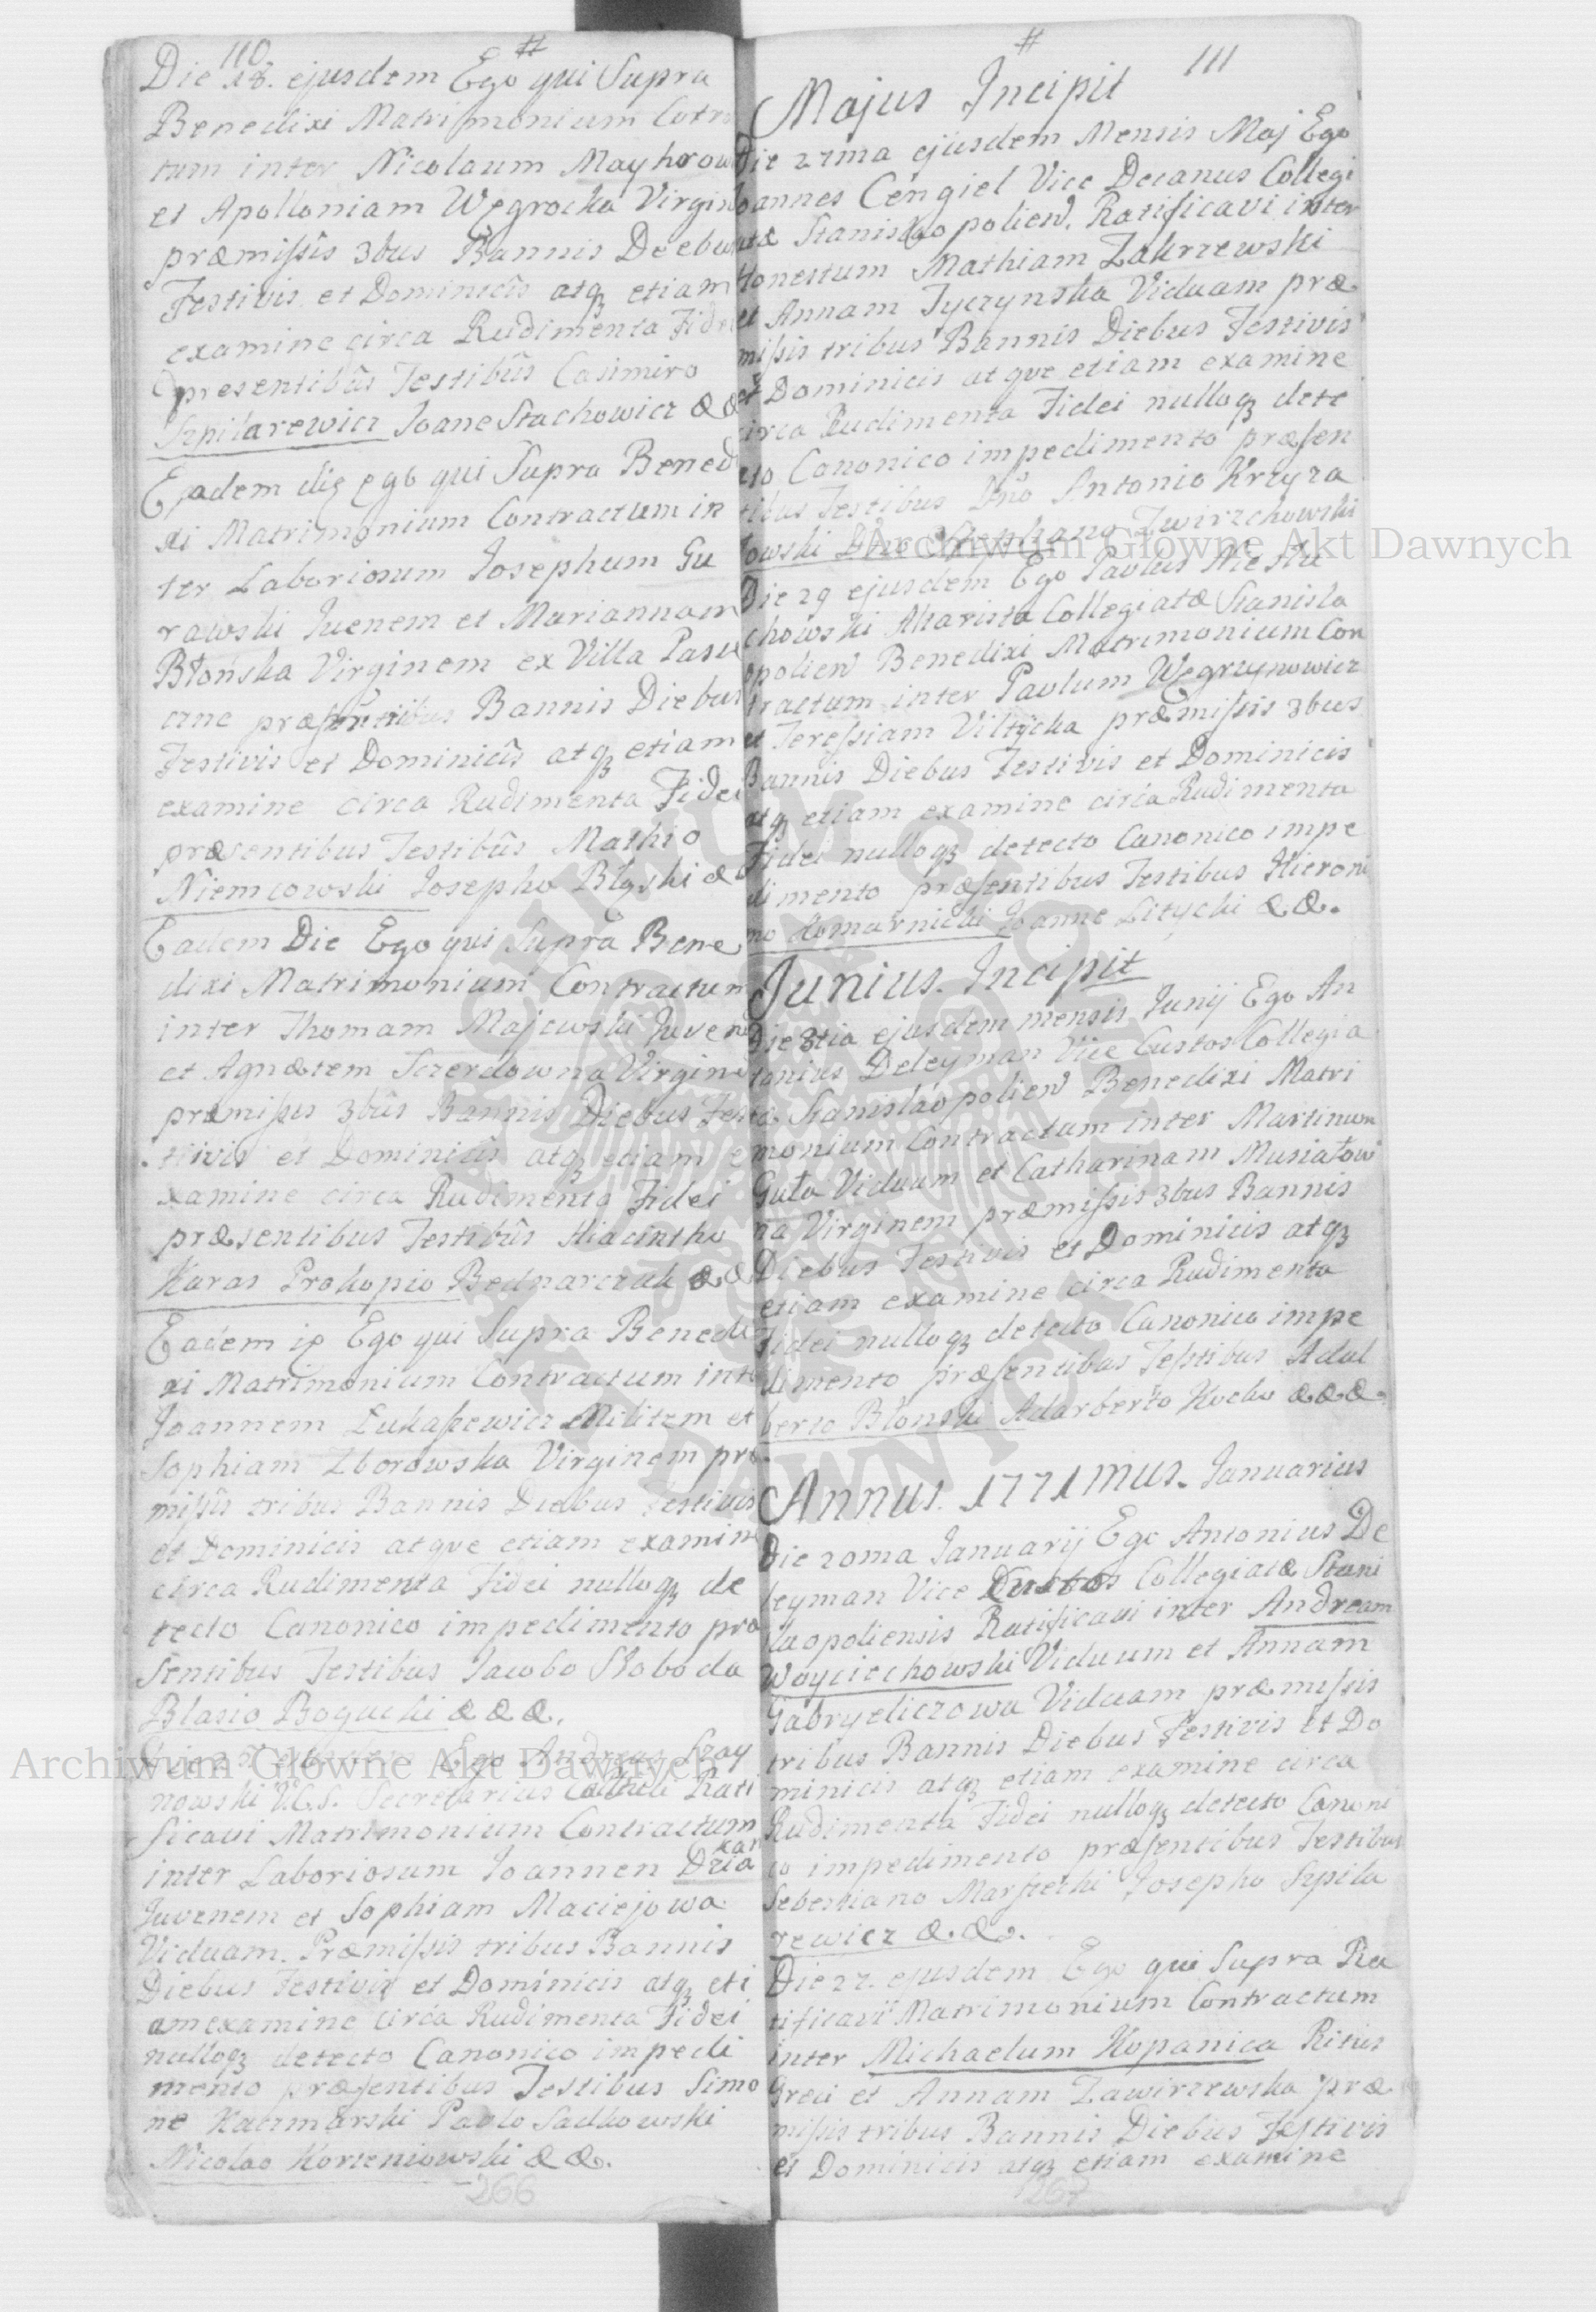 110 #
Die 18. ejusdem Ego qui Supra
Benedixi Matrimonium Cotra
tum inter Nicolaum Mayhrow
et Apolloniam Węgrocka Virgin
præmiſsis 3bus Bannis Diebus
Festivis et Dominicis atqꝫ etiam
examine circa Rudimenta Fidei
presentibûs Testibûs Casimiro
Szpilarewicz Joane Stachowicz & &
Eadem die ego qui Supra Bened
xi Matrimonium Contractum in
ter Laboriosum Josephum Gu
rawski Juenem et Mariannam
Błonska Virginem ex Villa Pasie
czne Bannis Diebus
Festivis et Dominicîs atqꝫ etiam
examine circa Rudimenta Fidei
præsentibus Testibûs Mathio
Niemcowski Josepho Błyski &
Eadem Die Ego qui Supra Bene
dixi Matrimonium Contractum
inter Thomam Majewski Juvene
et Agnætem Szerdowna Virgine
præmiſsis 3bûs Bannis Diebus Fes
tivis et Dominicis atqꝫ etiam e
xamine circa Rudimenta Fidei
præsentibus Testibûs Hiacintho
Karas Prokopio Bednarczuk & &
Eadem Ego qui Supra Benedi
xi Matrimonium Contractum inte
Joannem Łukaſzewicz Militem et
Sophiam Zborowska Virginem præ
miſsîs tribus Bannis Diebus Festivis
et Dominicis atque etiam examine
circa Rudimenta Fidei nulloqꝫ de
tecto Canonico impedimento præ
sentibus Testibus Jacobo Słoboda
Blasio Bogucki & & &.
Ego Andreas Szay
nowski V.C.S. Secretarius Rati
ficavi Matrimonium Contractum
inter Laboriosum Joannen Dzia kan
Juvenem et Sophiam Maciejowa
Viduam. Præmiſsis tribus Bannis
Diebus Festivis et Dominicis atqꝫ eti
am examine circa Rudimenta Fidei
nulloqꝫ detecto Canonico impedi
mento præſentibus Testibus Simo
ne Kaczmarski Pavlo Sadkowski
Nicolao Korzeniowski & &.
266
# 111
Majus Incipit
Die 27ma ejusdem Mensis Maj Ego
Joannes Cengiel Vice Decanus Collegi
atæ Stanislaopolien. Ratificavi inter
Honestum Mathiam Zakrzewski
et Annam Tyczynska Viduam præ
miſsis tribus Bannis Diebus Festivis
et Dominicis atque etiam examine
circa Rudimenta Fidei nulloqꝫ dete
cto Canonico impedimento præſen
tibus Testibus Dno Antonio Krzyza
towski Dno Stephano Zwirzchowski
Die 29 ejusdem Ego Pavlus Niestu
chowski Altarista Collegiatæ Stanisla
opolien Benedixi Matrimonium Con
tractum inter Pavlum Węgrzynowicz
et Tereſsiam Viltycka præmiſsis 3bus
Bannis Diebus Festivis et Dominicis
atqꝫ etiam examine circa Rudimenta
Fidei nulloqꝫ detecto Canonico impe
dimento præſentibus Testibus Hieroni
mo Komarnicki Joanne Litycki & &.
Junius. Incipit
Die 3tia ejusdem mensis Junij Ego An
tonius Deleyman Vice Custos Collegia
tæ Stanislaopolien Benedixi Matri
monium Contractum inter Martinum
Guła Viduum et Catharinam Musiałow
na Virginem præmiſsis 3bus Bannis
Diebus Festivis et Dominicis atqꝫ
etiam examine circa Rudimenta
Fidei nulloqꝫ detecto Canonico impe
dimento præſentibus Teſtibus Adal
berto Błonski Adarberto Kocko & & &.
Annus. 1771mus. Januarius
Die 20ma Januarij Ego Antonius De
leyman Vice Custos Collegiatæ Stani
slaopoliensis Ratificavi inter Andream
Woyciechowski Viduum et Annam
Gabryeliczowa Viduam præmiſsis
tribus Bannis Diebus Festivis et Do
minicis atqꝫ etiam examine circa
Rudimenta Fidei nulloqꝫ detecto Canoni
co impedimento præſentibus Testibus
Sebestiano Josepho Szpila
rewicz & &.
Die 22. ejusdem Ego qui Supra Ra
tificavi Matrimonium Contractum
inter Michaelum Kopanica Ritus
Greci et Annam Zawirzewska præ
miſsis tribus Bannis Diebus Feſtivis
et Dominicis atqꝫ etiam examine
267
Archiwum Główne Akt Dawnych
Archiwum Główne Akt Dawnych
ARCHIWUM GŁÓWNE AKT DAWNYCH